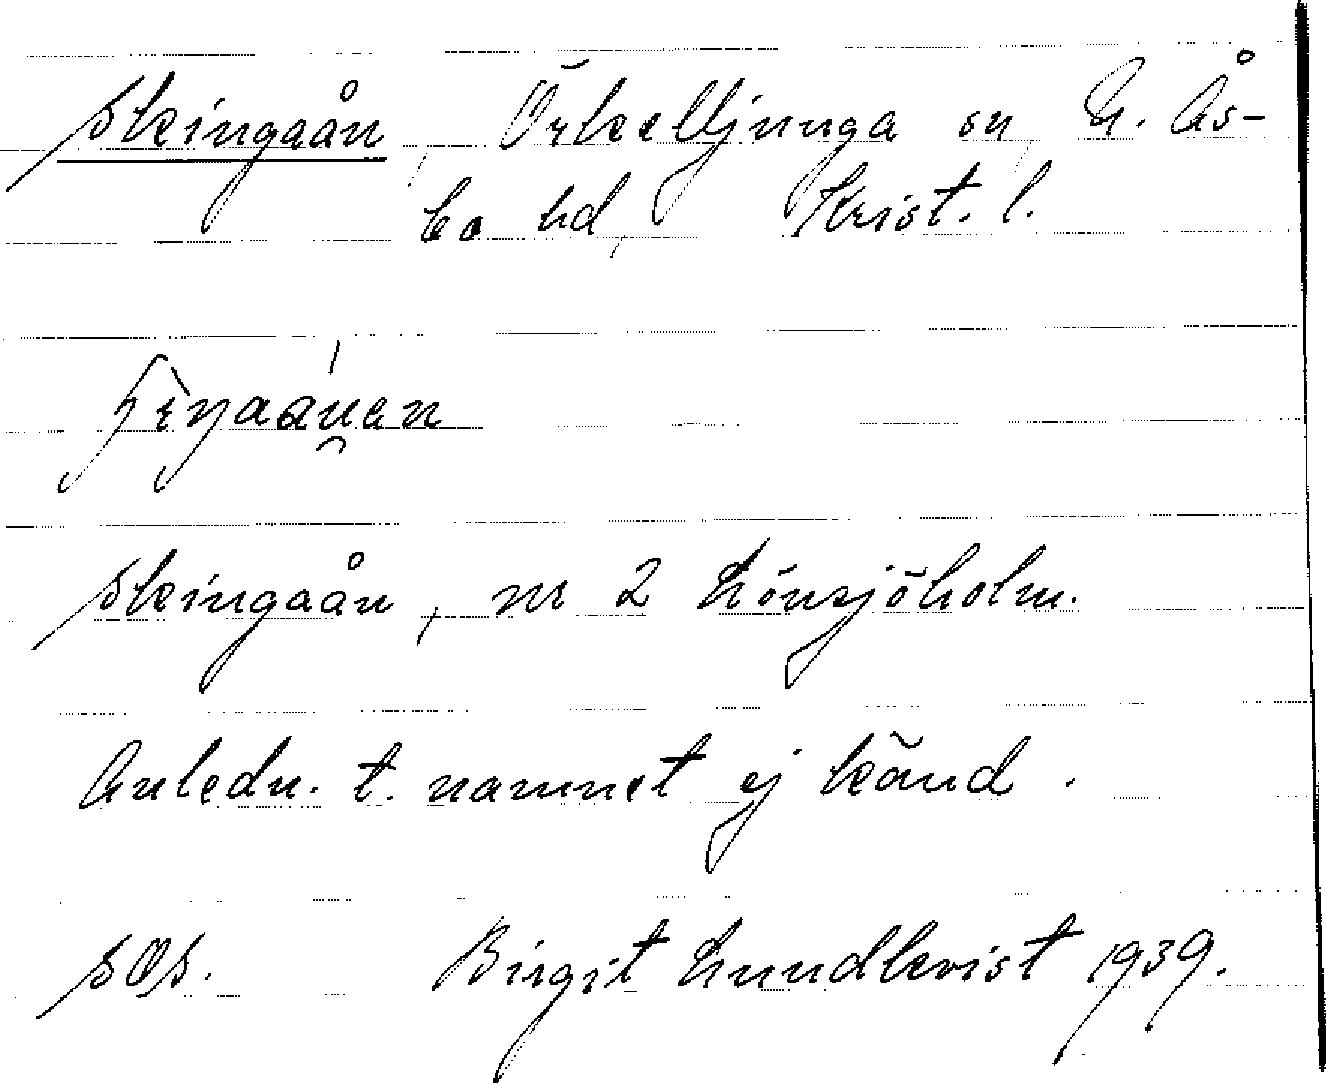 Skingaån, Örkelljunga sn, N. Ås-
bo hd, Krist. l.
Skingaån, nr 2 Lönsjöholm.
Anledn. t. namnet ej känd.
sås. Birgit Lundkvist 1939.